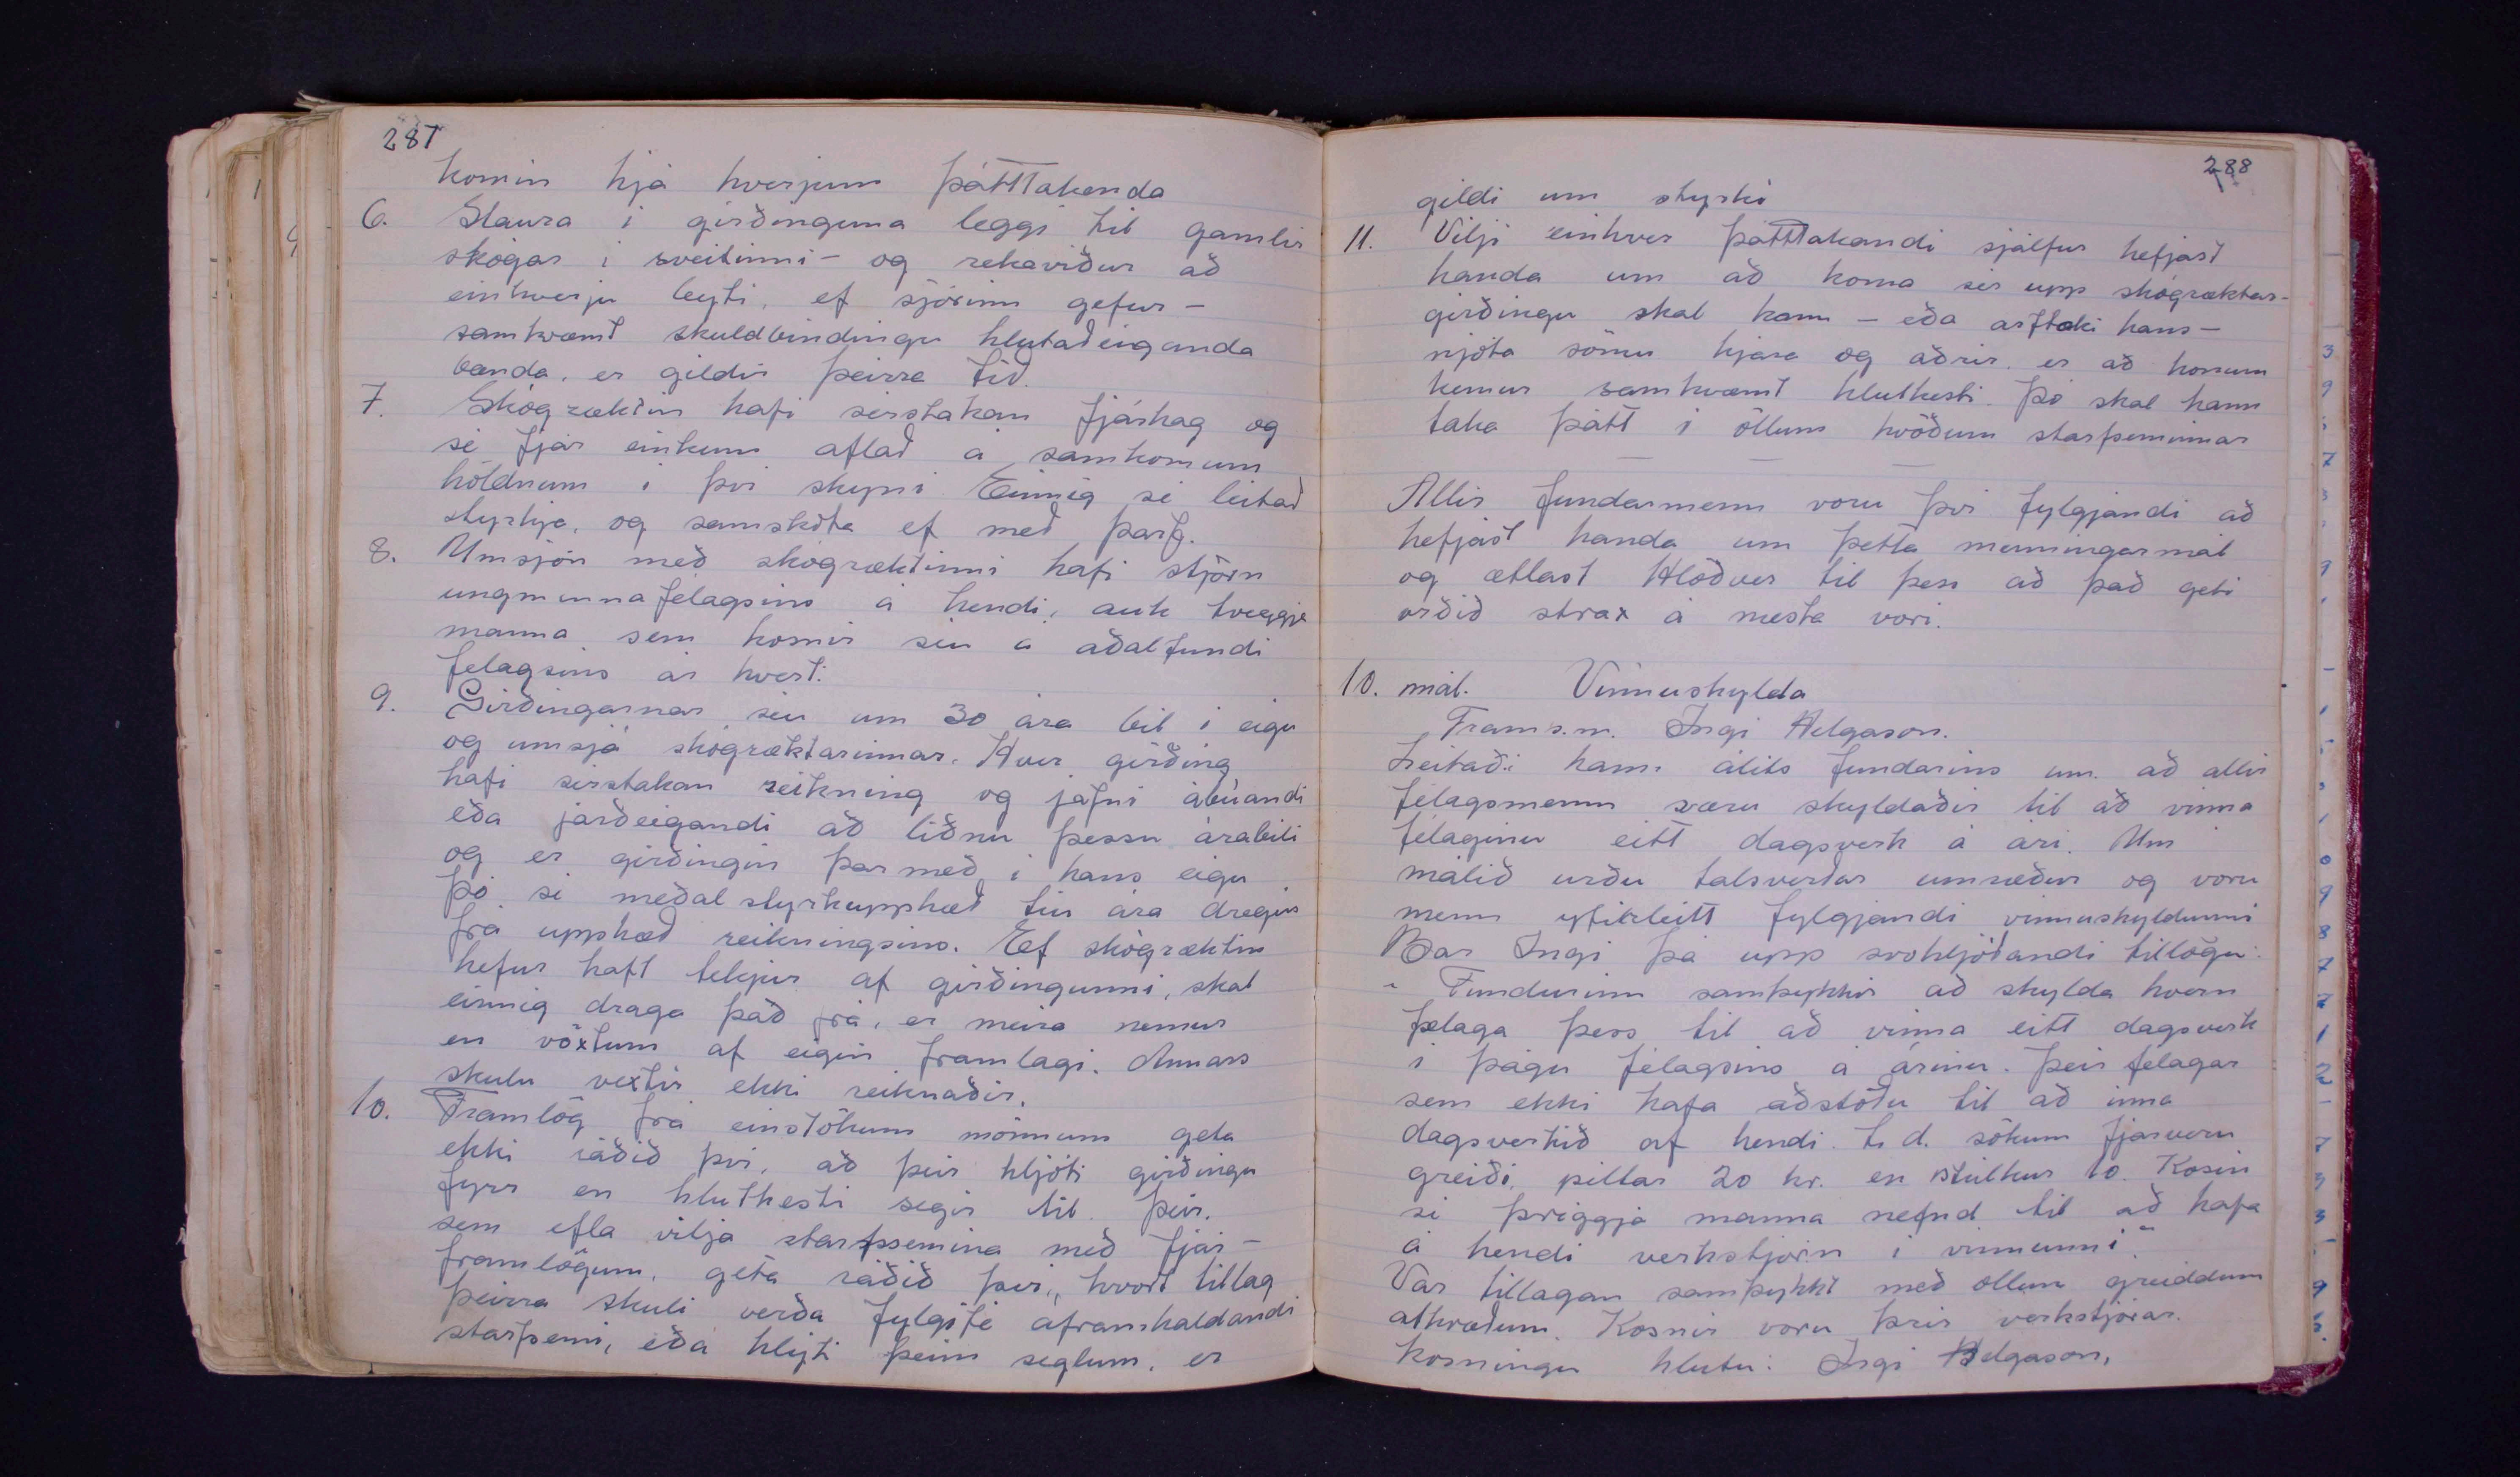 287
komin hjá hverjum þátttakenda
6. Staura í girðinguna leggi til gamlir
skógar í sveitinni - og rekaviður að
einhverju leyti, ef sjórinn gefur -
samkvæmt skuldbindingu hlutaðeiganda
bænda, er gildir þeirra tíð.
7. Skógræktin hafi sérstakan fjárhag og
sé fjár einkum aflað á samkomum
höldnum í því skyni. Einnig sé leitað
styrkja, og samskota ef með þarf.
8. Umsjón með skógræktinni hafi stjórn
ungmennafélagsins á hendi, auk tveggja
manna sem kosnir séu á aðalfundi
felagsins ár hvert.
9. Girðingarnar séu um 30 ára bil í eigu
og umsjá skógræktarinnar. Hver girðing
hafi sérstakan reikning og jafni ábúandi
eða jarðeigandi að liðnu þessu árabili
og er girðingin þar með í hans eigu
þó sé meðal styrkupphæð tíu ára dregin
frá upphæð reikningsins. Ef skógræktin
hefur haft tekjur af girðingunni, skal
einnig draga það frá, er meira nemur
en vöxtum af eigin framlagi. Annars
skulu vextir ekki reiknaðir.
10. Framlög frá einstökum mönnum geta
ekki ráðið því, að þeir hljóti girðingu
fyrr en hlutkesti segir til. Þeir,
sem efla vilja starfssemina með fjár-
framlögum, geta ráðið því, hvort tillag
þeirra skuli verða fylgifé áframhaldandi
starfsemi, eða hlýti þeim reglum, er
288
gildi um styrki
11. Vilji einhver þátttakandi sjálfur hefjast
handa um að koma sér upp skógræktar-
girðingu skal hann - eða arftaki hans -
njóta sömu kjara og aðrir, er að honum
kemur samkvæmt hlutkesti. Þó skal hann
taka þátt í öllum kvöðum starfseminnar
Allir fundarmenn voru því fylgjandi að
hefjast handa um þetta menningarmál
og ætlast Hlöðver til þess að það geti
orðið strax á næsta vori.
10. mál. Vinnuskylda
Frams.m. Ingi Helgason.
Leitaði hann álits fundarins um að allir
félagsmenn væru skyldaðir til að vinna
félaginu eitt dagsverk á ári. Um
málið urðu talsverðar umræður og voru
menn yfirleitt fylgjandi vinnuskyldunni
Bar Ingi þá upp svohljóðandi tillögu:
"Fundurinn samþykkir að skylda hvern
félaga þess til að vinna eitt dagsverk
í þágu félagsins á árinu. Þeir félagar
sem ekki hafa aðstöðu til að inna
dagsverkið af hendi t.d. sökum fjarveru
greiði, piltar 20 kr. en stúlkur 10. Kosin
sé þriggja manna nefnd til að hafa
á hendi verkstjórn í vinnunni"
Var tillagan samþykkt með öllum greiddum
atkvæðum. Kosnir voru þrír verkstjórar.
Kosningu hlutu: Ingi Helgason,